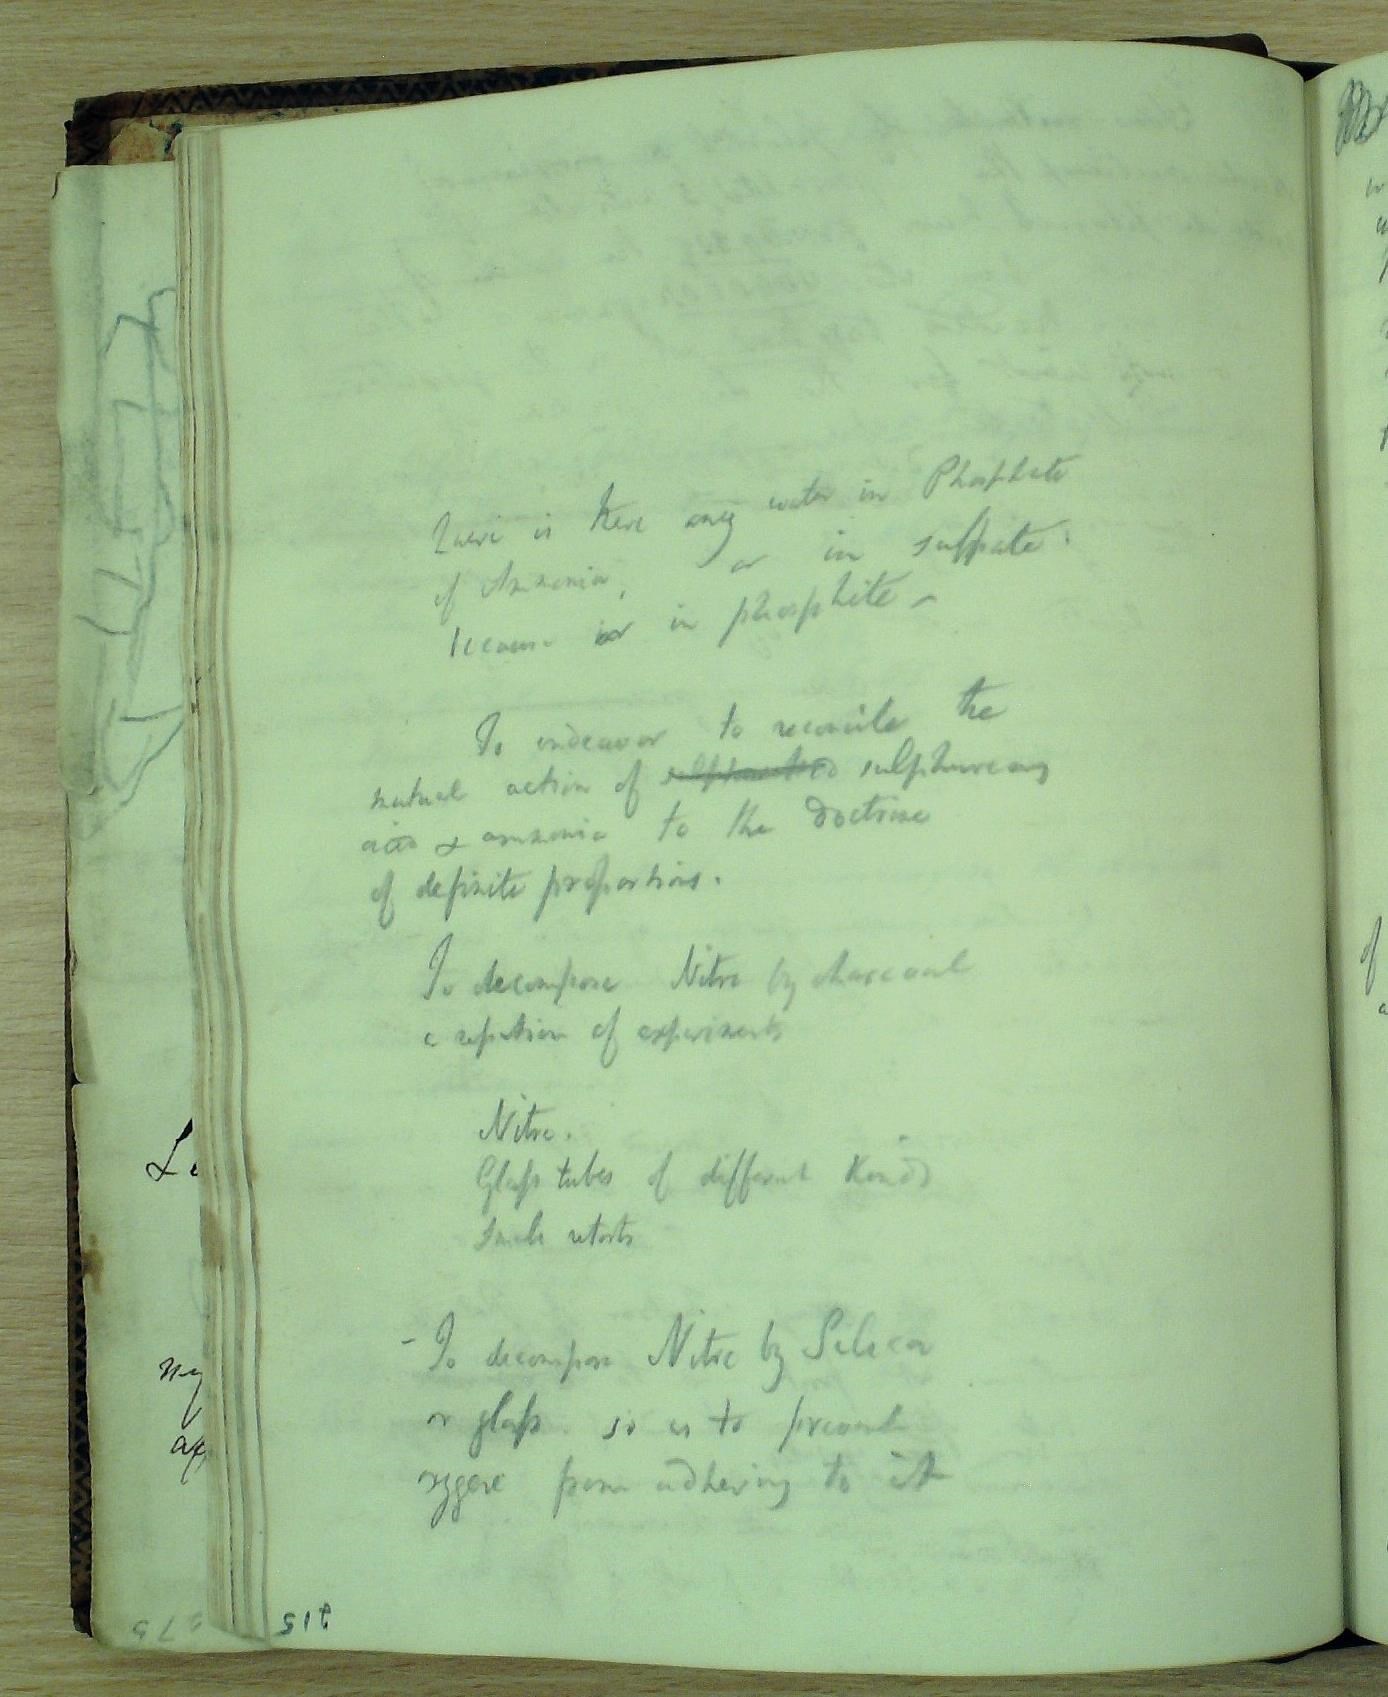 Quere is there any water in Phosphate
of Ammonia, or in sulfate.
because or in phosphite –
To endeavor to reconcile the
mutual action of sulphureous
acid & ammonia to the doctrine
of definite proportions.
To decompose Nitre by charcoal
a repition of experiments
Nitre.
Glass tubes of different Kinds
Small retorts
- To decompose Nitre by Silica
or glass so as to prevent
oxygene from adhering to it
215